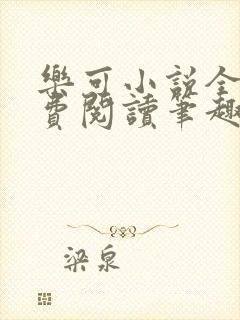 樂可小說全
費閱讀筆趣
梁泉